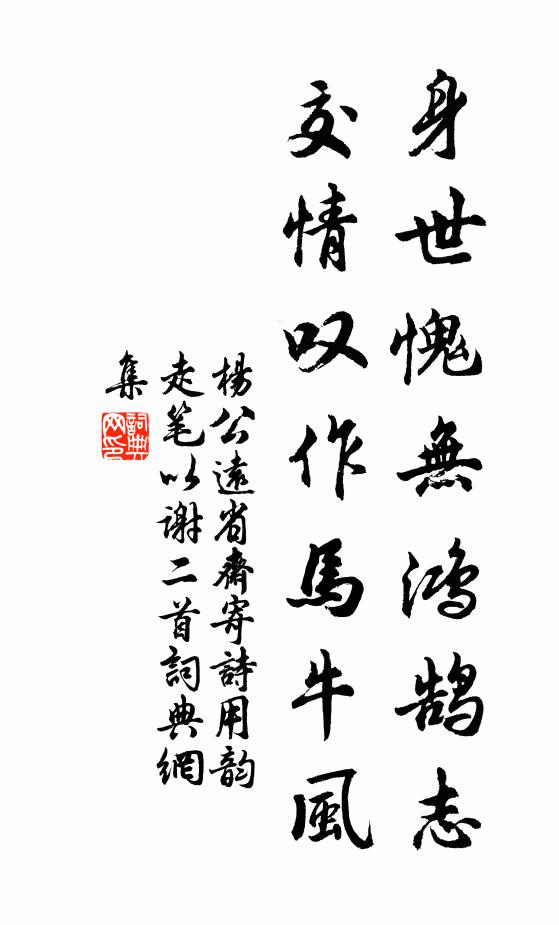 身世愧無鴻鹄志
交情叹作馬牛風
楊公遠省齋寄詩用韵
走笔以谢二首詞典網
集
詞典
网印